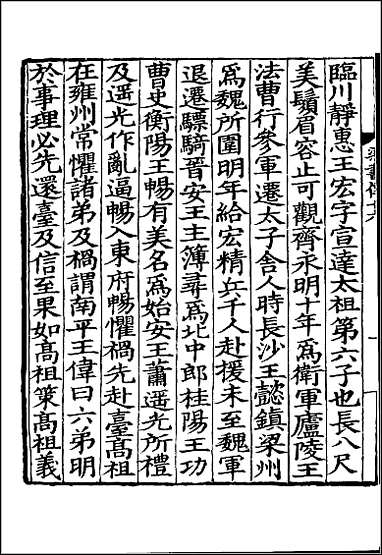 臨川靜惠王宏字宣達太祖第六子也長八尺
美鬚眉容止可觀齊永明十年爲衛軍廬陵王
法曹行參軍遷太子舍人時長沙王懿鎮梁州
爲魏所圍明年給宏精兵千人赴援未至魏軍
退遷驃騎晉安王主簿尋爲北中郎桂陽王功
曹史衡陽王暢有美名爲始安王蕭遥光所禮
及遥光作亂逼暢入東府暢懼禍先赴臺髙祖
在雍州常懼諸弟及禍謂南平王偉曰六弟明
於事理必先還臺及信至果如髙祖策髙祖義